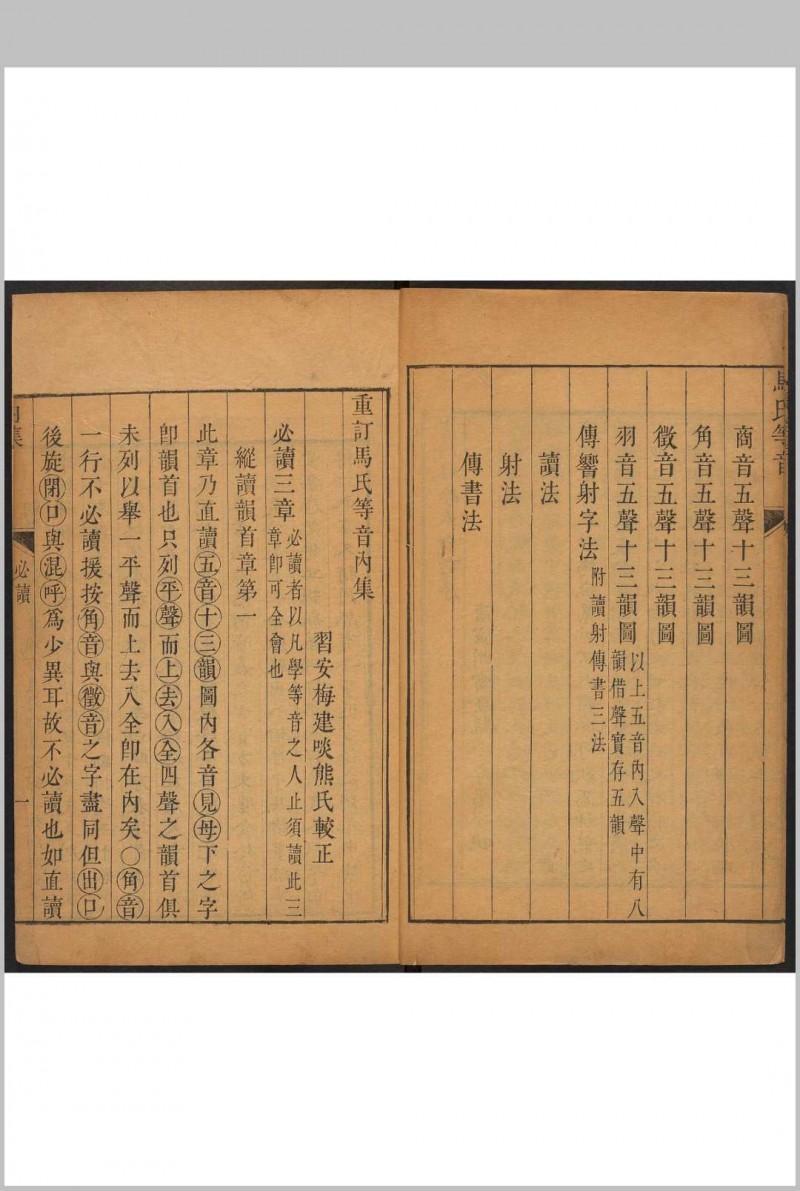 馬氏等音
商音五聲十三韻圖
角音五聲十三韻圖
徵音五聲十三韻圖
羽音五聲十三韻圖 以上五音內入聲中有八
韻借聲實存五韻
傳響射字法 附讀射傳書三法
讀法
射法
傳書法
重訂馬氏等音內集
習安梅建啖熊氏較正
必讀三章 必讀者以凡學等音之人止須讀此三
章卽可全會也
縱讀韻首章第一
此章乃直讀五音十三韻圖內各音見母下之字
卽韻首也只列平聲而上去入全四聲之韻首俱
未列以舉一平聲而上去入全卽在內矣○角音
一行不必讀援按角音與徵音之字盡同但出口
後旋閉口與混呼爲少異耳故不必讀也如直讀
內集
必讀
一